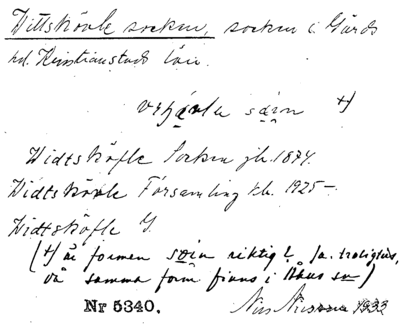 Vittskövle socken, socken i Gärds
hd. Kristianstads län.
sɷ̀in +)
Widtsköfle Socken jb. 1874.
Widtsköfle Församling kb. 1925–.
Widtsköfle G.
(+) är formen søin riktig? Ja, troligtvis,
då samma form finns i Åhus sn)
Nr 5340. 1933